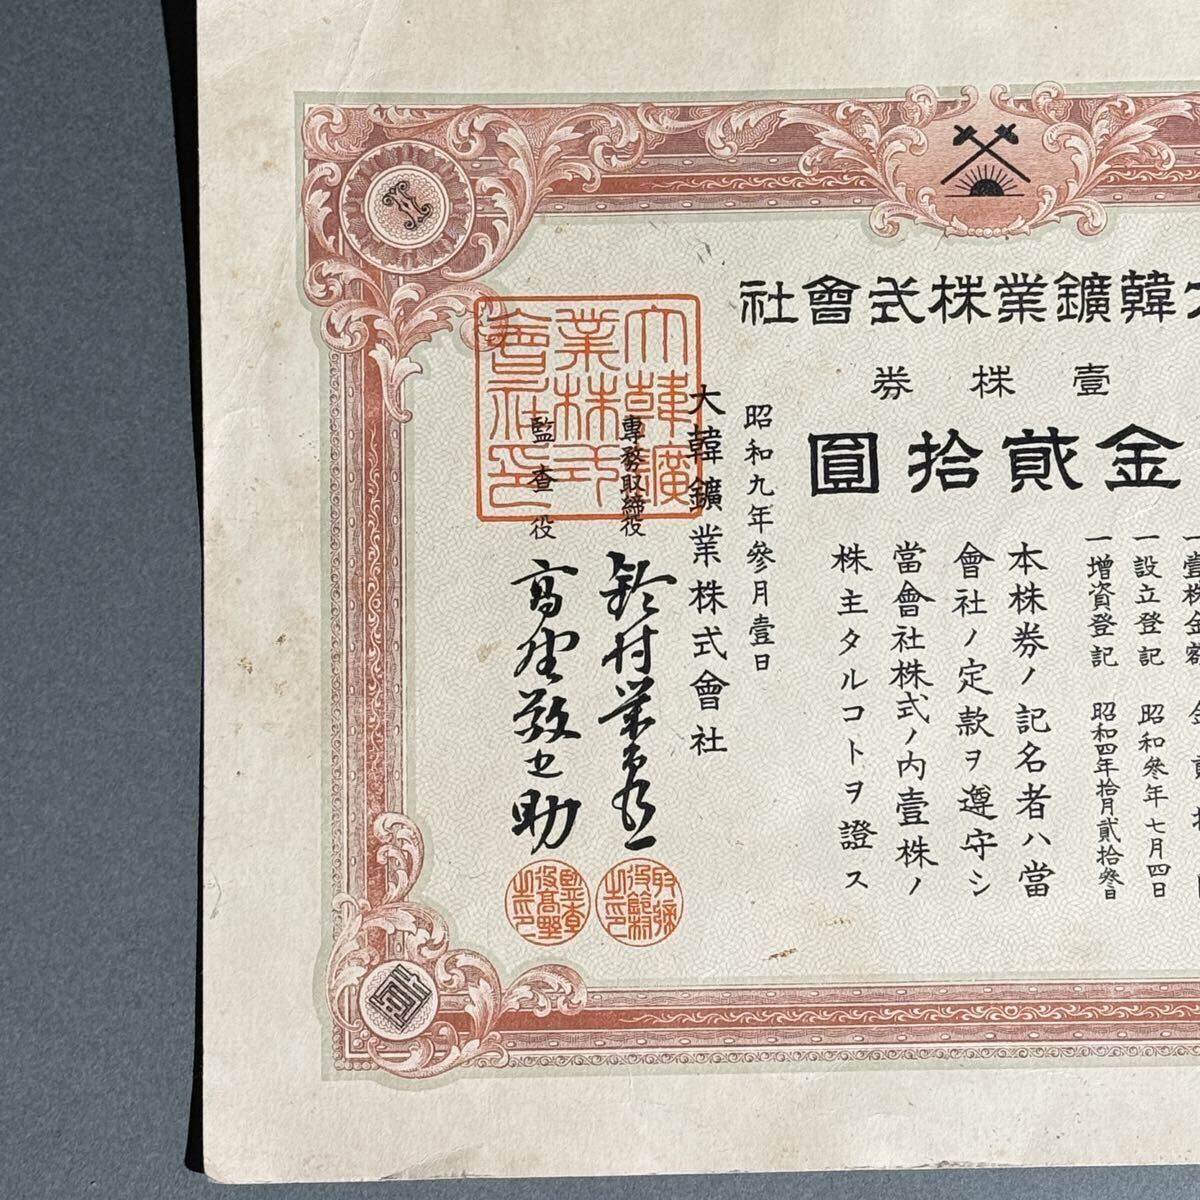 韓鑛業株式會社
壹株券
金貳拾圓
一壹株金額 金貳拾
一設立登記 昭和參年七月四日
一增資登記 昭和四年拾月貳拾參日
本株券ノ記名者ハ當
會社ノ定款ヲ遵守シ
當會社株式ノ內壹株ノ
株主タルコトヲ證ス
昭和九年參月壹日
大韓鑛業株式會社
專務取締役
監查役 高野敬之助
大韓鑛業株式會社之印
壹
1